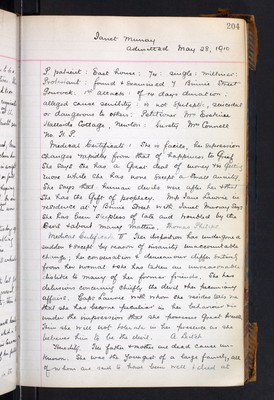 204
Janet Murray
Admitted May 28, 1910
P. patient: East house: 74: single: milliner:
Protestant: found & examined 7 Binnie Street
Gourock: 1st attack: of 14 days duration:
alleged cause senility: is not epileptic, suicidal
or dangerous to others: Petitioner Mr Erskine
Hillside Cottage, Newton: Surety Mr Connell
No H.P.
Medical Certificate I. She is facile, her expression
changes rapidly from that of happiness to grief
She says she has a great deal of money &
more while she has none except a small annuity.
She says that human devils were after her & that
she has the gift of prophecy.
residence at 7 Binnie Street with Janet Murray says
she has been sleepless of late and troubled by the
devil about many matters.
Medical Certificate II. Her disposition has undergone a
sudden & except by reason of insanity unaccountable
change; her conversation & demeanour differ entirely
from her normal. She has taken an unreasonable
dislike to many of her former friends. She has
delusions concerning chiefly the devil & her pecuniary
affairs. with whom she resides tells me
that she has become peculiar in her behaviour &
under the impression that she possesses great
she will not tolerate in her presence as she
believes him to be the devil.
Heredity. Her father & mother are dead causes un-
known. She was the youngest of a large family, all
of whom are said to have been well & died at